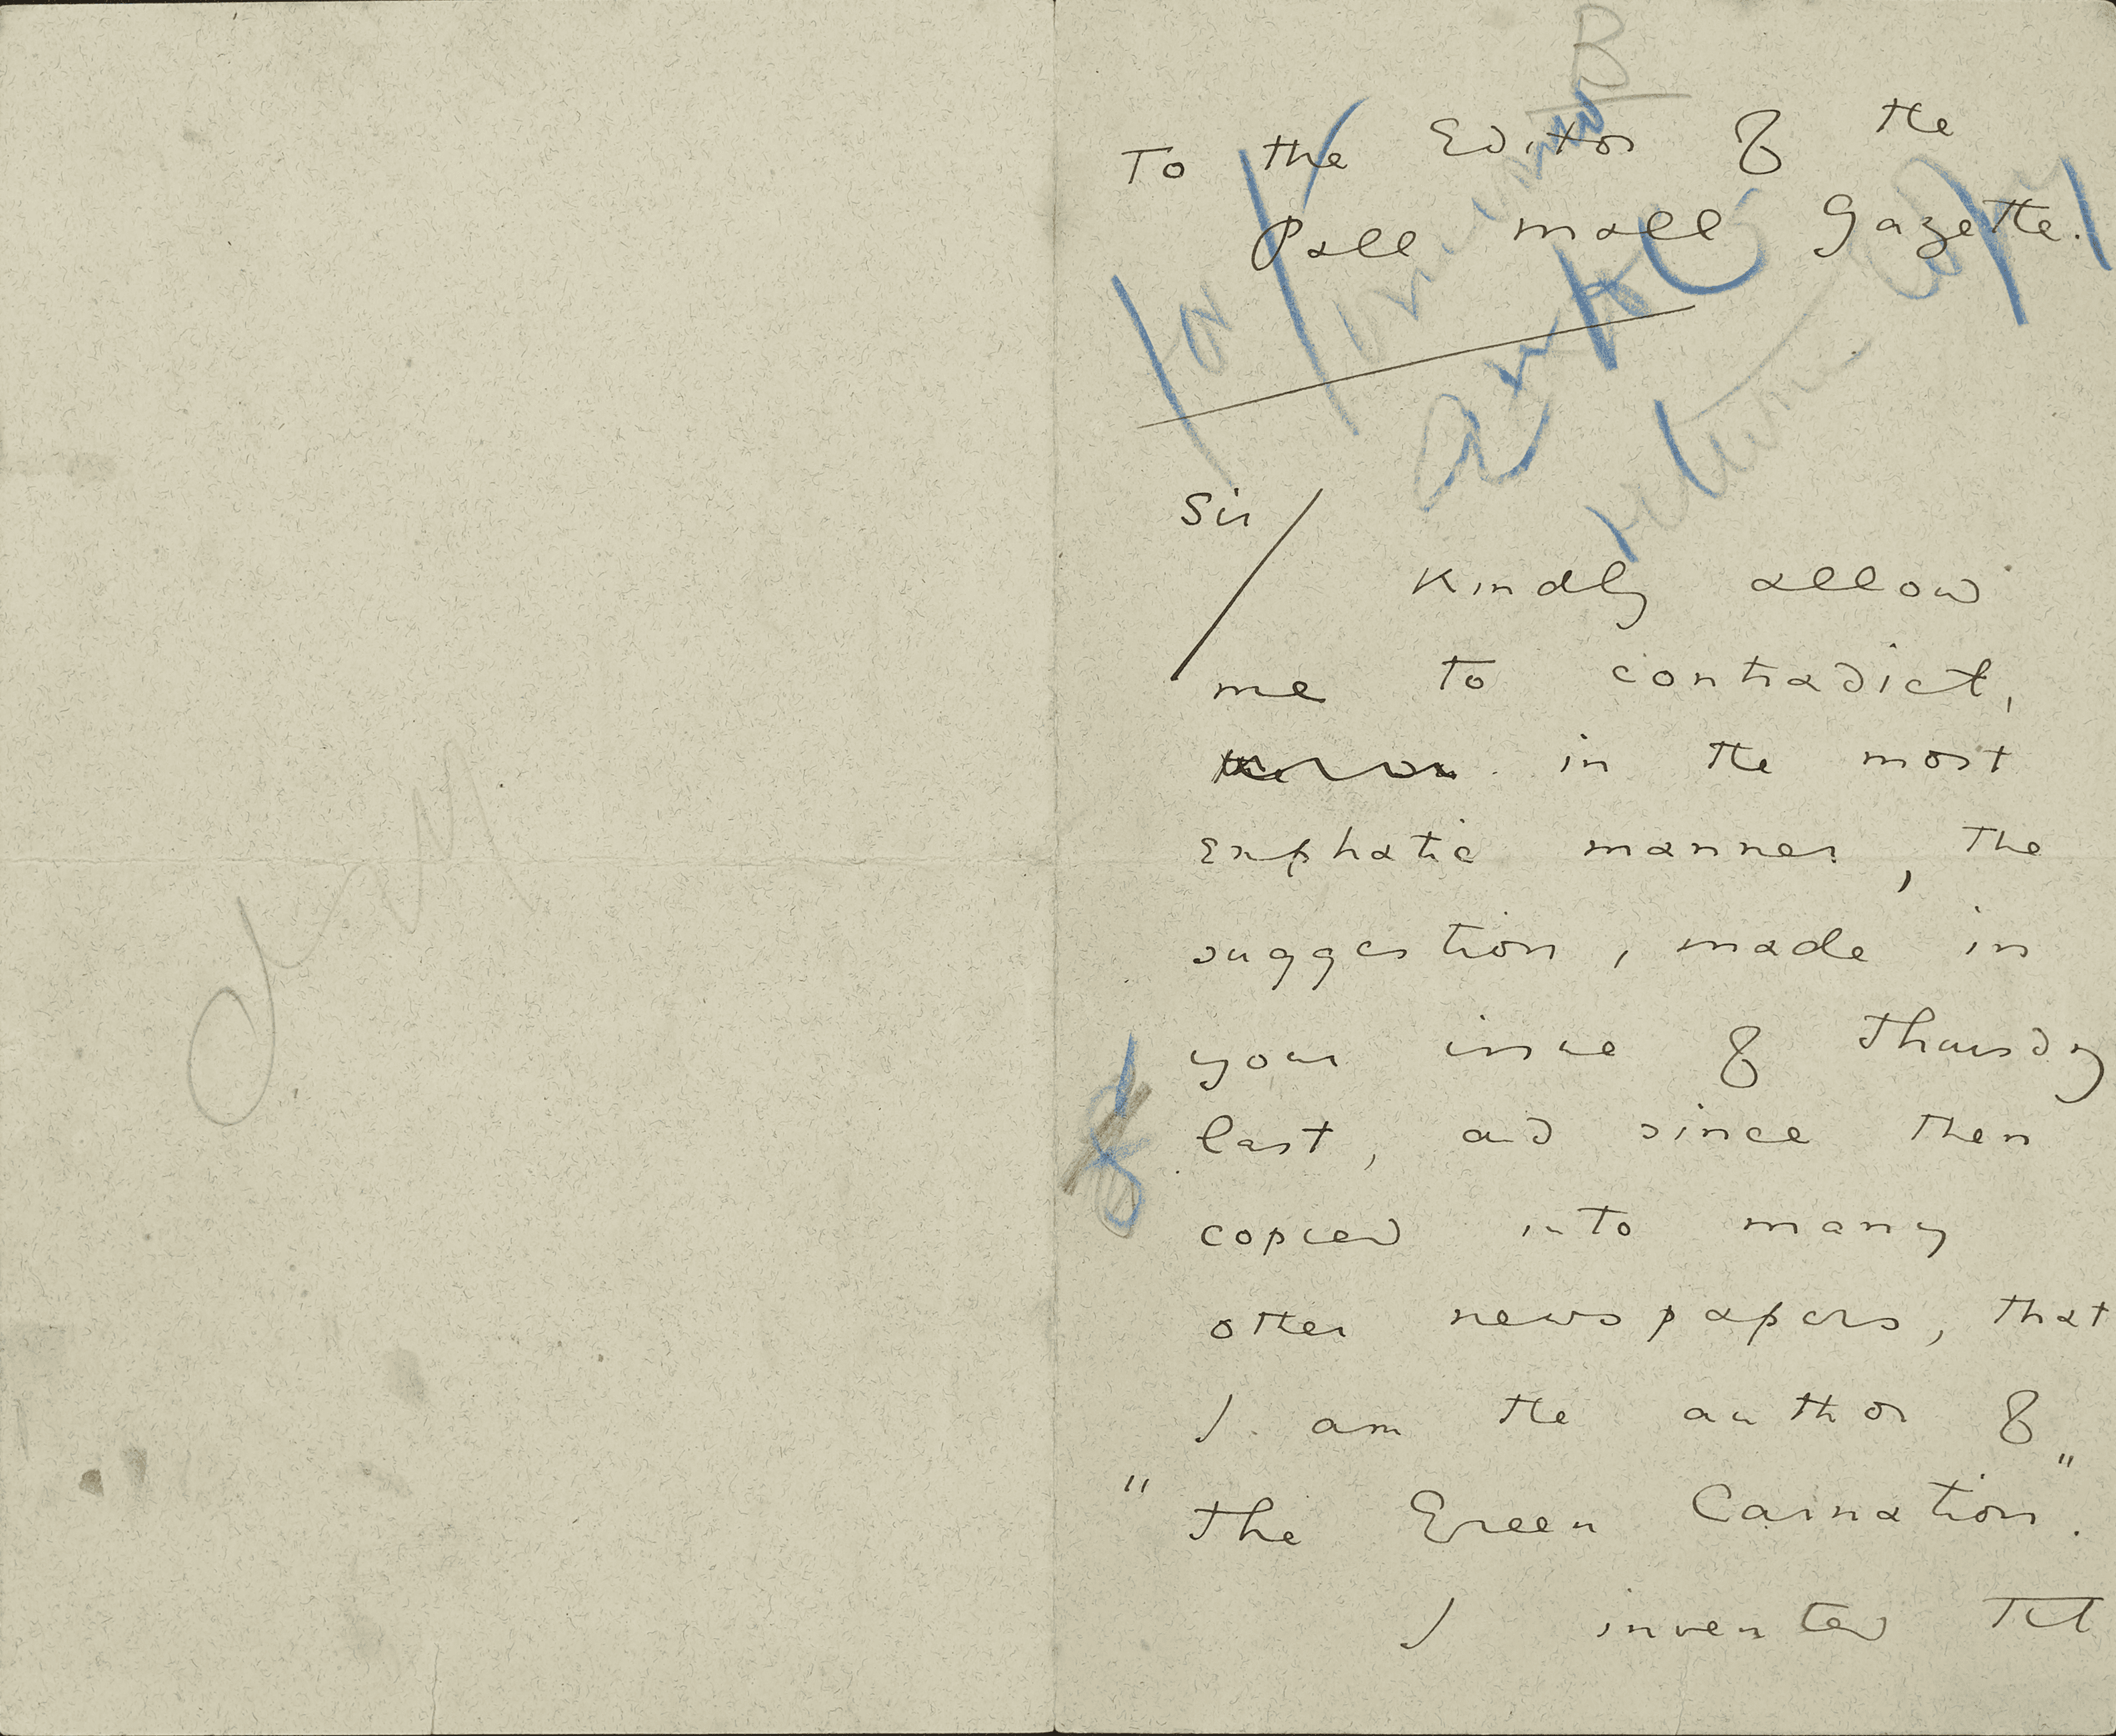 B
To the Editor of the
Pall Mall Gazette.
return
copy
Sir
Kindly allow
me to contradict,
in the most
emphatic manner, the
suggestion, made in
your issue of Thursday
last, and since then
copied into many
other newspapers, that
I am the author of
"The Green Carnation".
I invented that